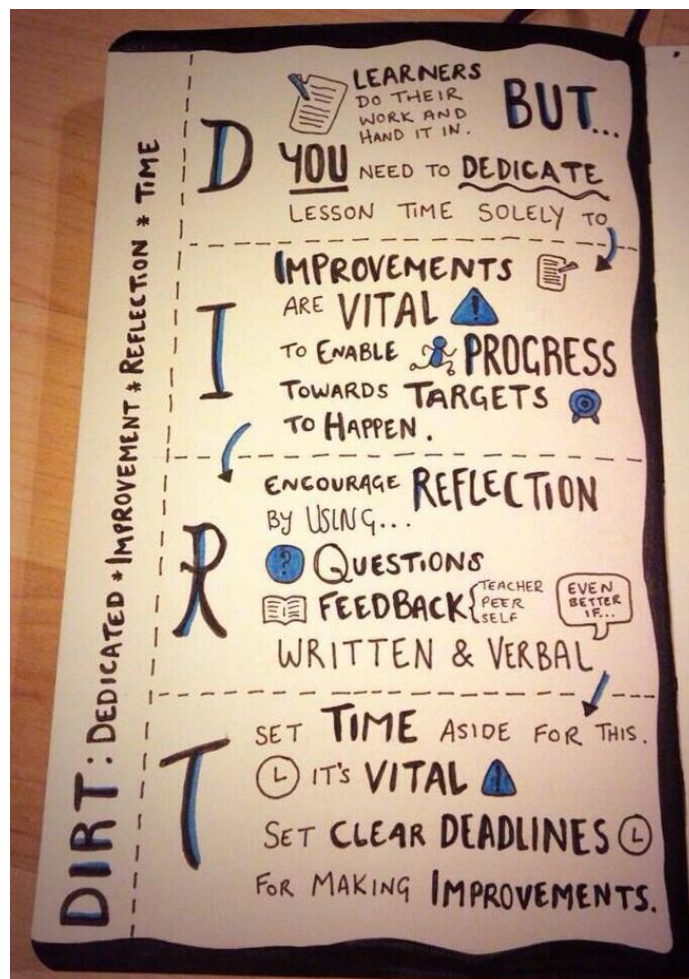 DIRT: DEDICATED * IMPROVEMENT * REFLECTION * TIME
D
LEARNERS
DO THEIR
WORK AND
HAND IT IN.
BUT...
YOU NEED TO DEDICATE
LESSON TIME SOLELY TO
I
IMPROVEMENTS
ARE VITAL !
TO ENABLE PROGRESS
TOWARDS TARGETS
TO HAPPEN.
R
ENCOURAGE REFLECTION
BY USING...
? QUESTIONS
FEEDBACK { TEACHER
PEER
SELF
EVEN
BETTER
IF...
WRITTEN & VERBAL
T
SET TIME ASIDE FOR THIS.
IT'S VITAL !
SET CLEAR DEADLINES
FOR MAKING IMPROVEMENTS.